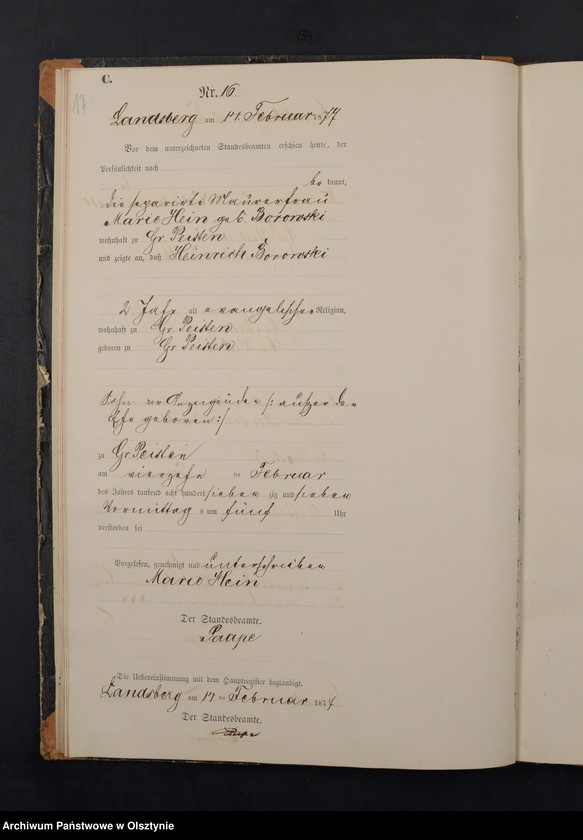 C.
17
Nr. 16.
Landsberg am 14. Februar 1877
Vor dem unterzeichneten Standesbeamten erschien heute, der
Persönlichkeit nach
be kannt,
die separirte Maurerfrau
Marie Hein geb. Borowski
wohnhaft zu Gr. Peisten
und zeigte an, daß Heinrich Borowski
2 Jahr alt evangelischer Religion,
wohnhaft zu Gr. Peisten
geboren zu Gr. Peisten
Sohn der Anzeigenden /: außer der
Ehe geboren :/
zu Gr. Peisten
am vierzehn ten Februar
des Jahres tausend acht hundert sieben zig und sieben
Vormittag s um fünf Uhr
verstorben sei
Vorgelesen, genehmigt und unterschrieben
Marie Hein
Der Standesbeamte.
Paape
Die Uebereinstimmung mit dem Hauptregister beglaubigt.
Landsberg am 14 ten Februar 1877
Der Standesbeamte.
Paape
Archiwum Państwowe w Olsztynie